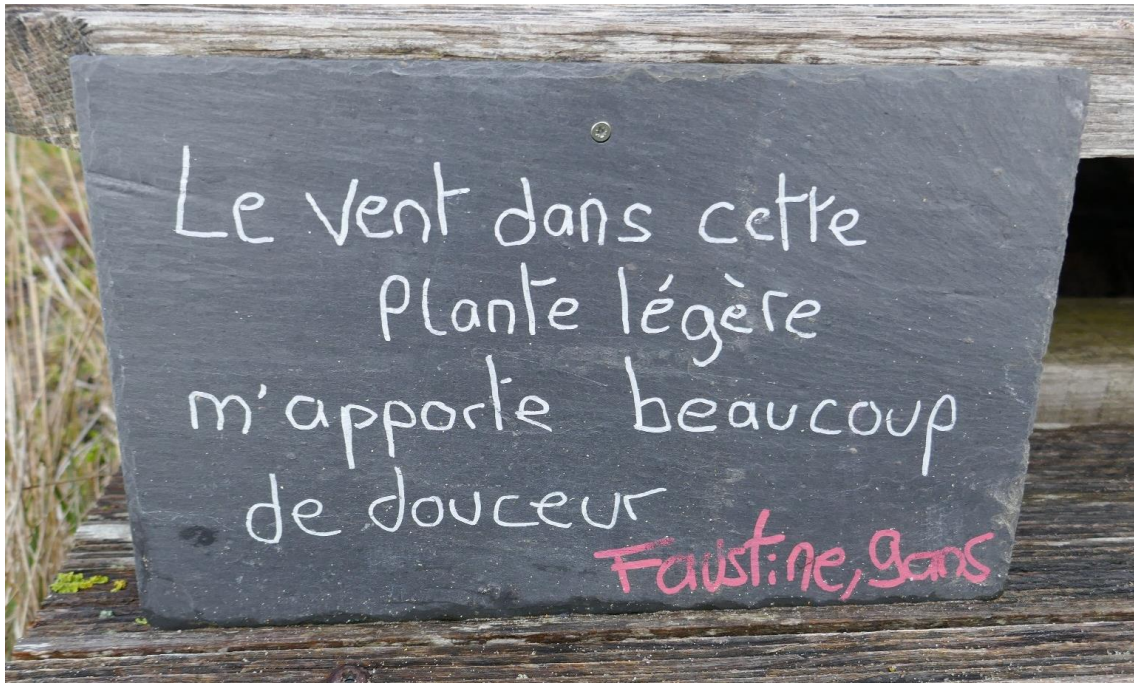 Le vent dans cette
plante légère
m'apporte beaucoup
de douceur
Faustine, 9ans